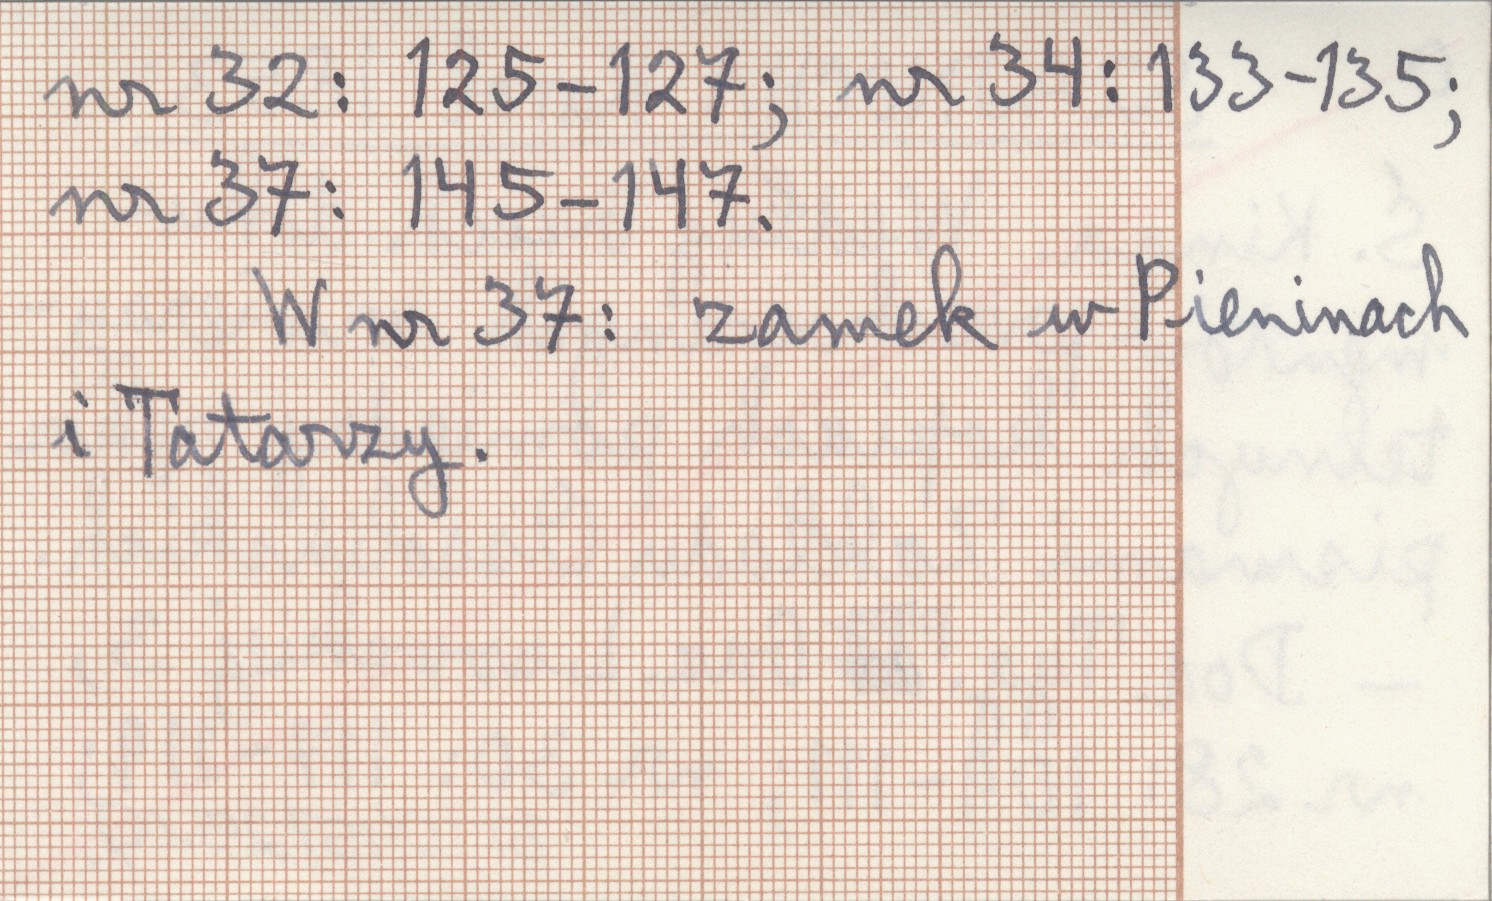 nr 32: 125-127; nr 34: 133-135;
nr 37: 145-147.
W nr 37: zamek w Pieninach
i Tatarzy.